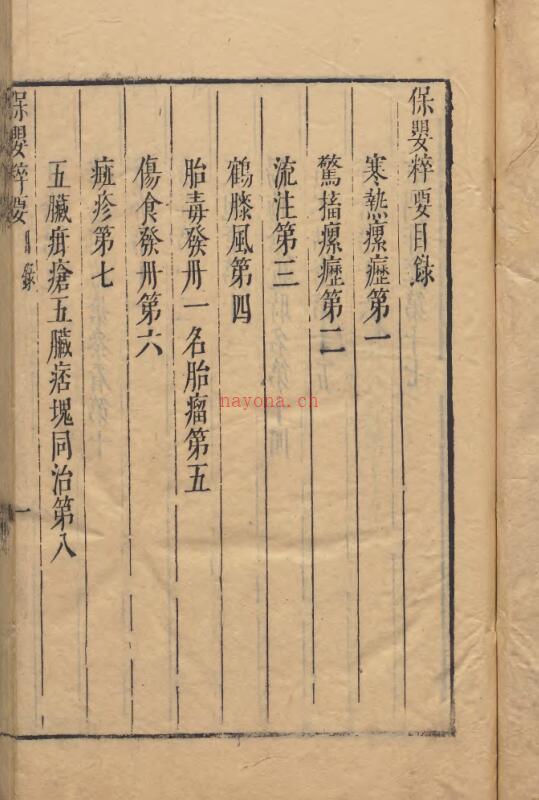 保嬰粹要目錄
寒熱瘰癧第一
驚搐瘰癧第二
流注第三
鶴膝風第四
胎毒發丹一名胎瘤第五
傷食發丹第六
痘疹第七
五臟疳瘡五臟痞塊同治第八
保嬰粹要 目錄 一
nayona.cn